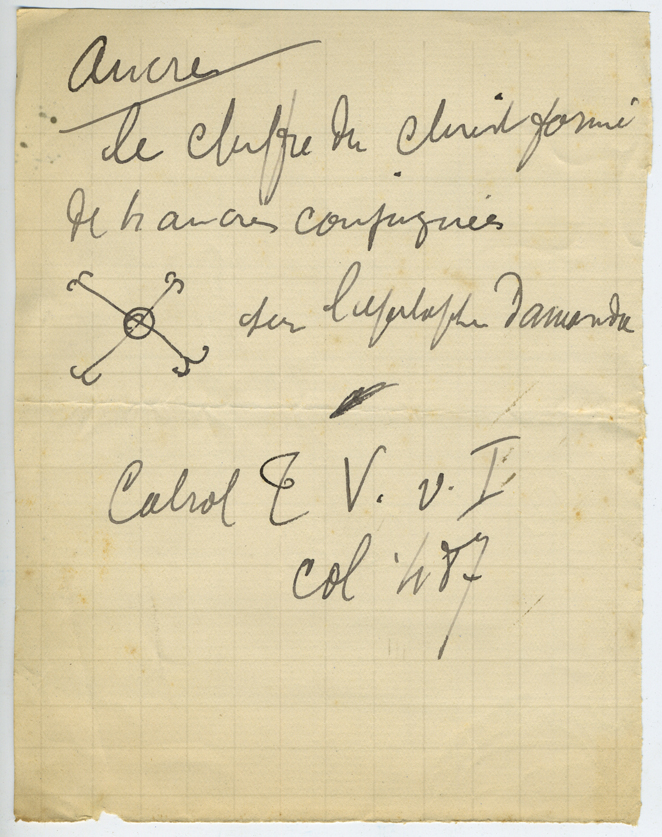 Ancre
le chiffre du christ formé
de 4 ancres conjuguées
sur l'epitaphe Damanda
Cabrol T V. v. I
col 487